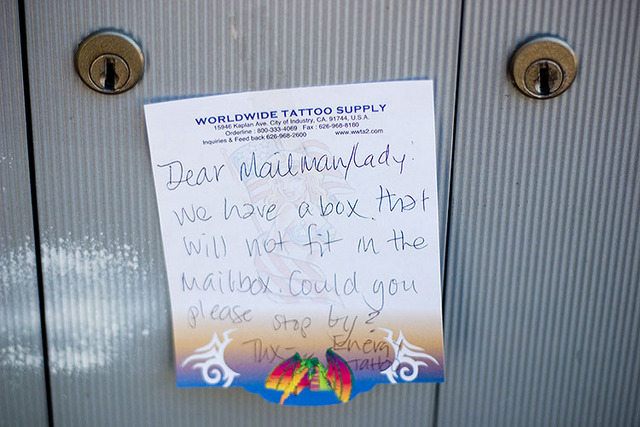 WORLDWIDE TATTOO SUPPLY
15946 Kaplan Ave. City of Industry, CA. 91744, U.S.A.
Orderline : 800-333-4069 Fax : 626-968-8180
Inquiries & Feed back 626-968-2600 www.wwta2.com
Dear Mailman/Lady:
We have a box that
will not fit in the
mailbox. Could you
please stop by?
Thx - Energy
Tattoo